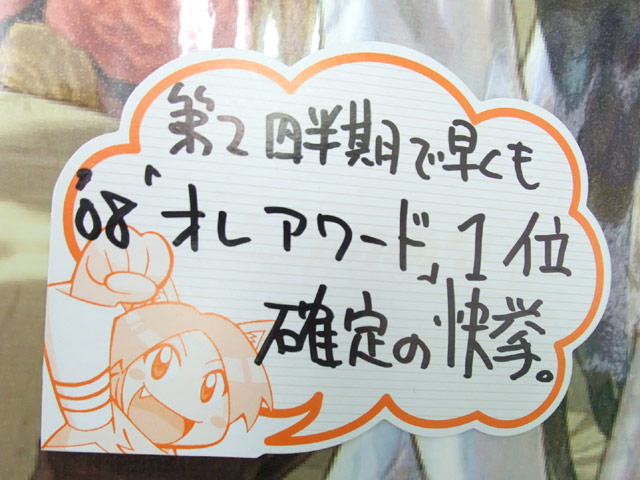 第2四半期で早くも
'08「オレアワード」1位
確定の快挙。